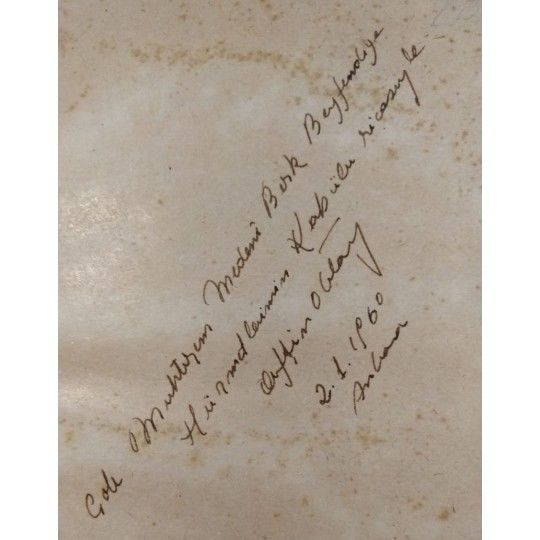 Çok Muhterem Medenî Berk Beyfendiye
Hürmetlerimin Kabülü ricasıyle
2.1.1960
Ankara